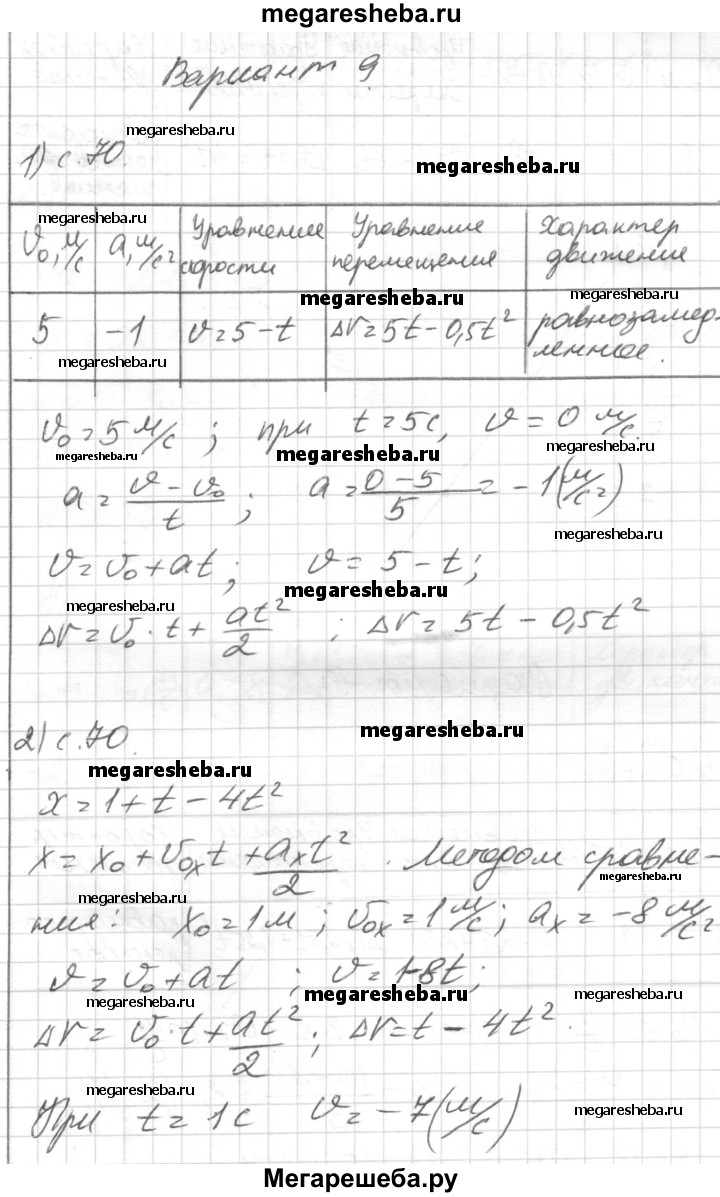 megaresheba.ru
Вариант 9
megaresheba.ru
1) с. 70
megaresheba.ru
megaresheba.ru
υ₀, м/с | a, м/с² | Уравнение скорости | Уравнение перемещения | Характер движения
megaresheba.ru
megaresheba.ru
5 | -1 | υ = 5 - t | Δr = 5t - 0,5t² | равнозамедленное.
megaresheba.ru
υ₀ = 5 м/с ; при t = 5с, υ = 0 м/с.
megaresheba.ru
megaresheba.ru
megaresheba.ru
a = (υ - υ₀)/t ; a = (0 - 5)/5 = -1 (м/с²)
megaresheba.ru
υ = υ₀ + at ; υ = 5 - t ;
megaresheba.ru
megaresheba.ru
Δr = υ₀ · t + at²/2 ; Δr = 5t - 0,5t²
2) с. 70.
megaresheba.ru
megaresheba.ru
x = 1 + t - 4t²
x = x₀ + υ₀ₓt + aₓt²/2 . Методом сравне-
megaresheba.ru
megaresheba.ru
ния: x₀ = 1 м ; υ₀ₓ = 1 м/с ; aₓ = -8 м/с²
υ = υ₀ + at ; υ = 1-8t ;
megaresheba.ru
megaresheba.ru
megaresheba.ru
Δr = υ₀ · t + at²/2 ; Δr = t - 4t².
megaresheba.ru
megaresheba.ru
При t = 1 с υ = -7 (м/с)
Мегарешеба.ру